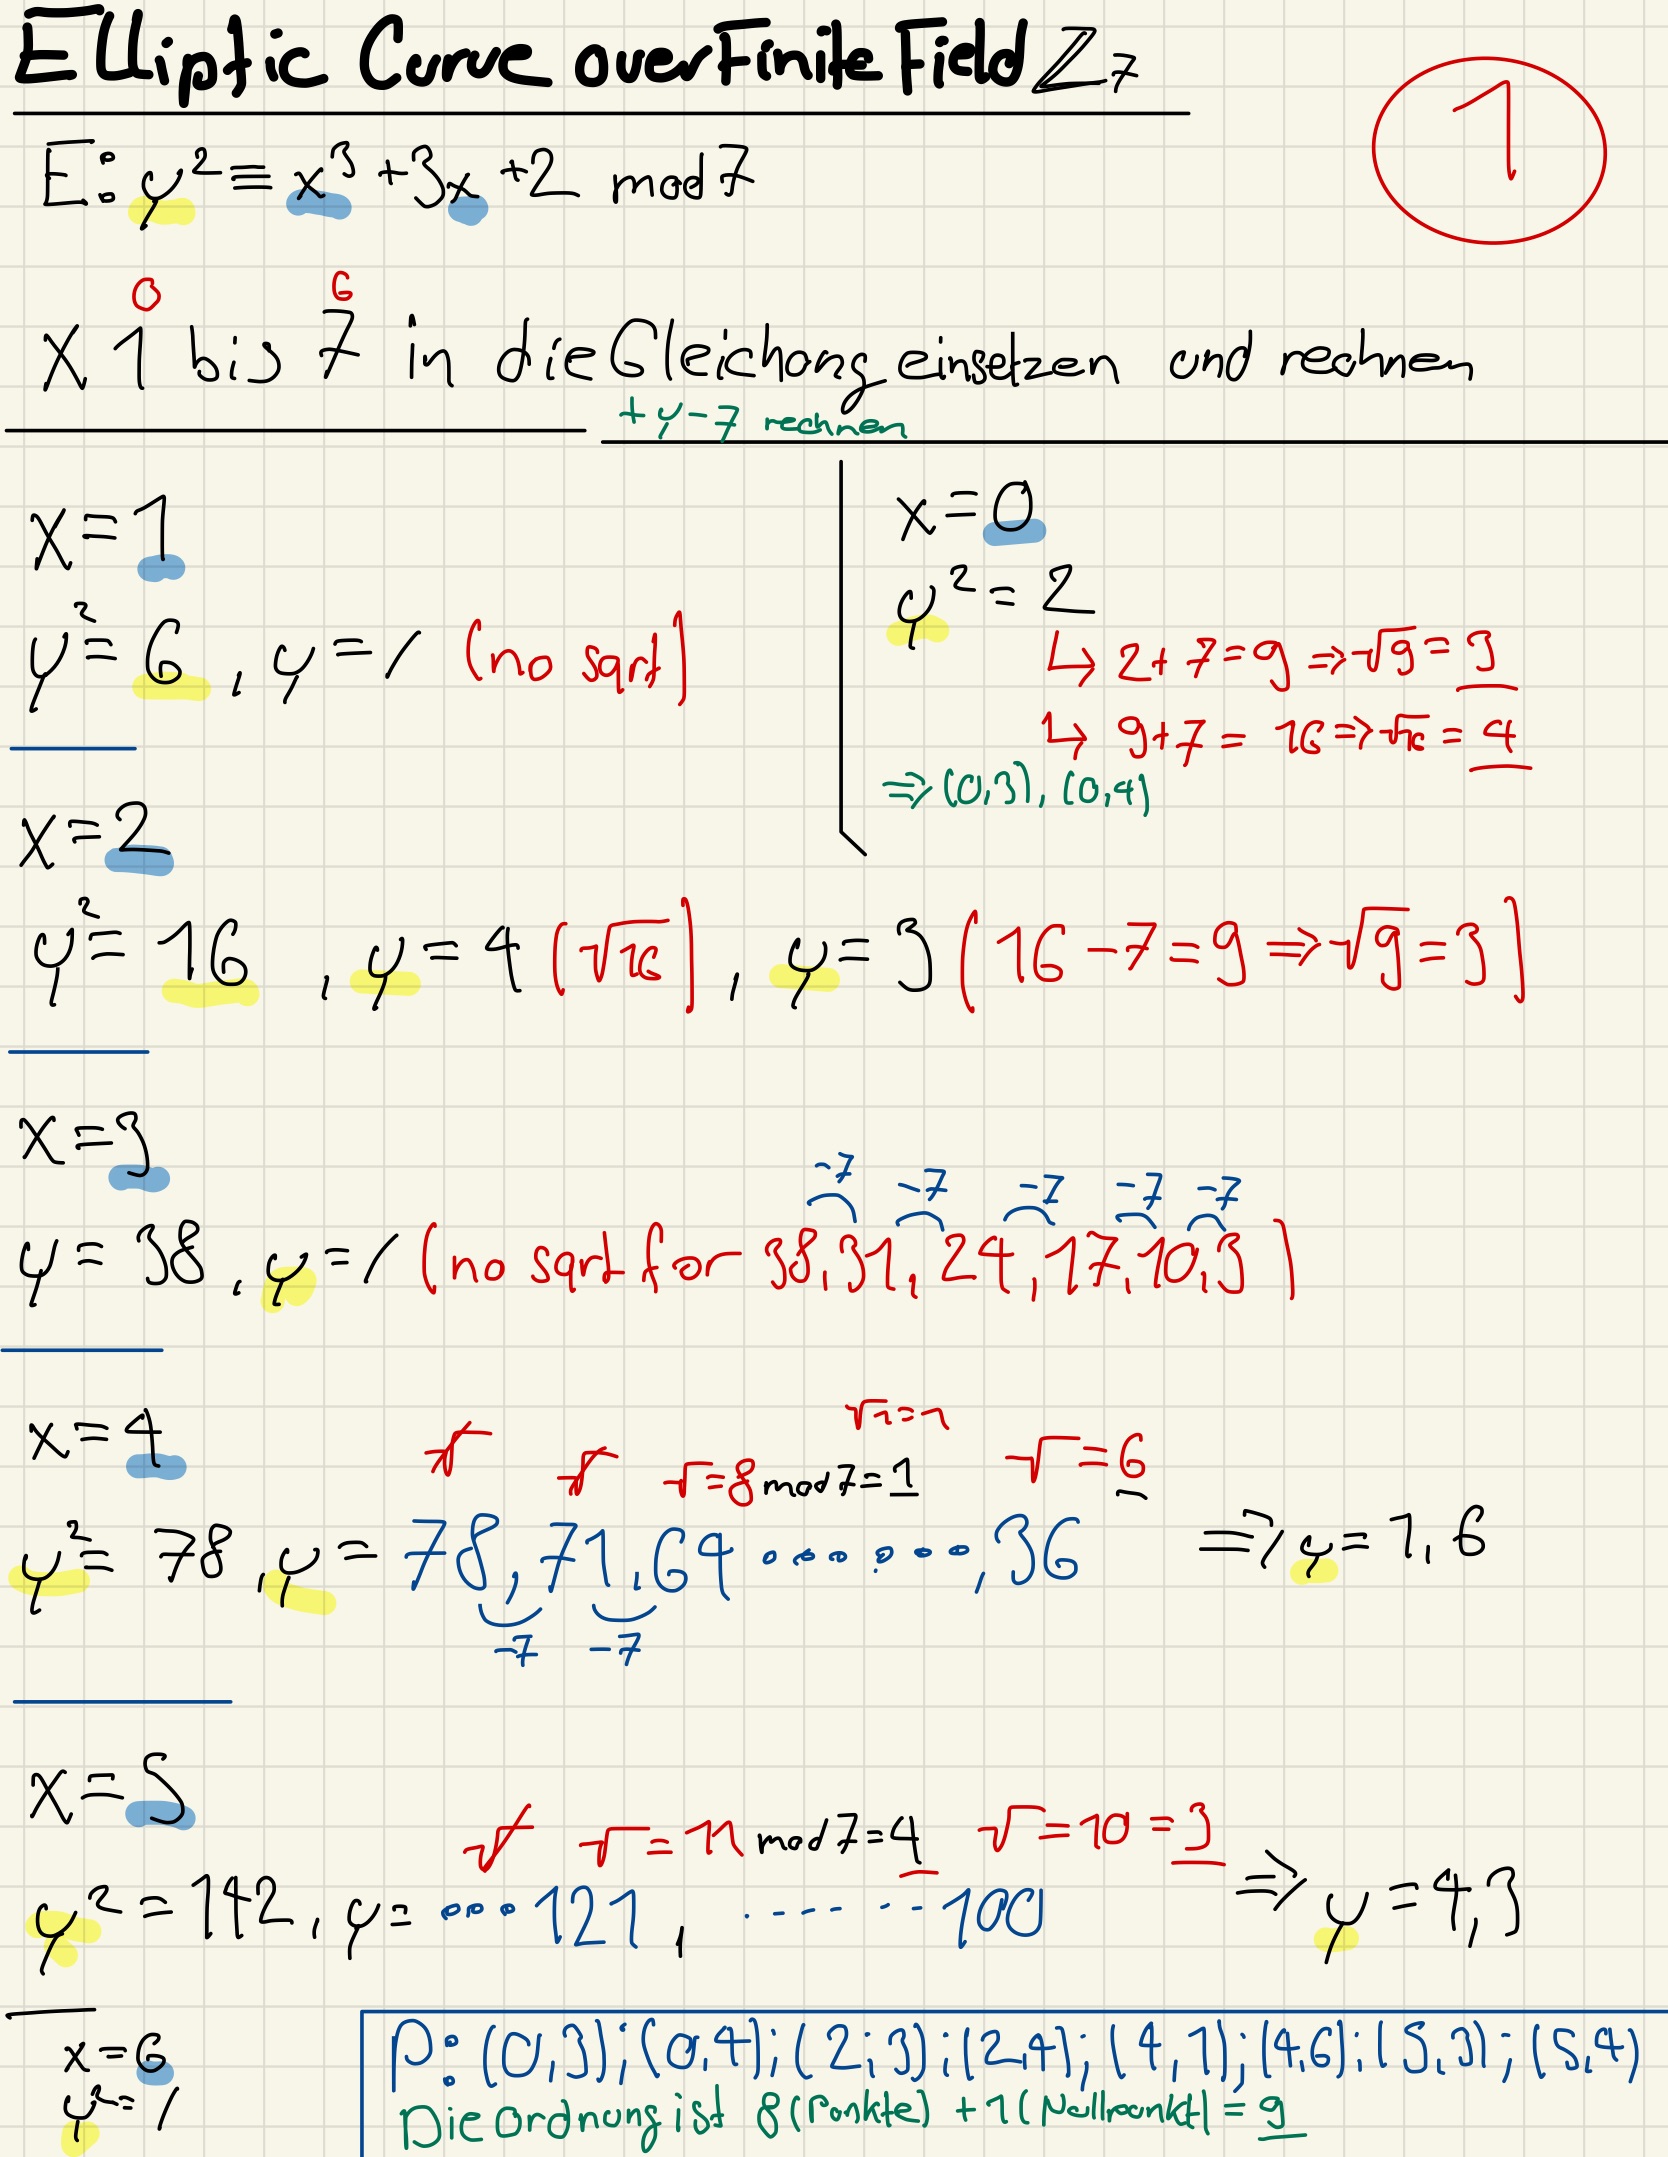 Elliptic Curve over Finite Field ℤ₇
1
E: y² ≡ x³ + 3x + 2 mod 7
0 6
X 1 bis 7 in die Gleichong einsetzen und rechnen
+ y - 7 rechnen
x = 1
y² = 6, y = / (no sqrt)
x = 0
y² = 2
↳ 2 + 7 = 9 ⇒ √9 = 3
↳ 9 + 7 = 16 ⇒ √16 = 4
⇒ (0,3), (0,4)
x = 2
y² = 16, y = 4 (√16), y = 3 (16 - 7 = 9 ⇒ √9 = 3)
x = 3
-7 -7 -7 -7 -7
y = 38, y = / (no sqrt for 38, 31, 24, 17, 10, 3)
x = 4
√1 = 1
√ √ √ = 8 mod 7 = 1 √ = 6
y² = 78, y = 78, 71, 64 ......., 36 ⇒ y = 1, 6
-7 -7
x = 5
√ √ = 11 mod 7 = 4 √ = 10 = 3
y² = 142, y = ... 121, ....... 100 ⇒ y = 4, 3
x = 6
y² = /
P: (0,3); (0,4); (2;3); (2,4); (4,1); (4,6); (5,3); (5,4)
Die Ordnung ist 8 (Punkte) + 1 (Nullpunkt) = 9